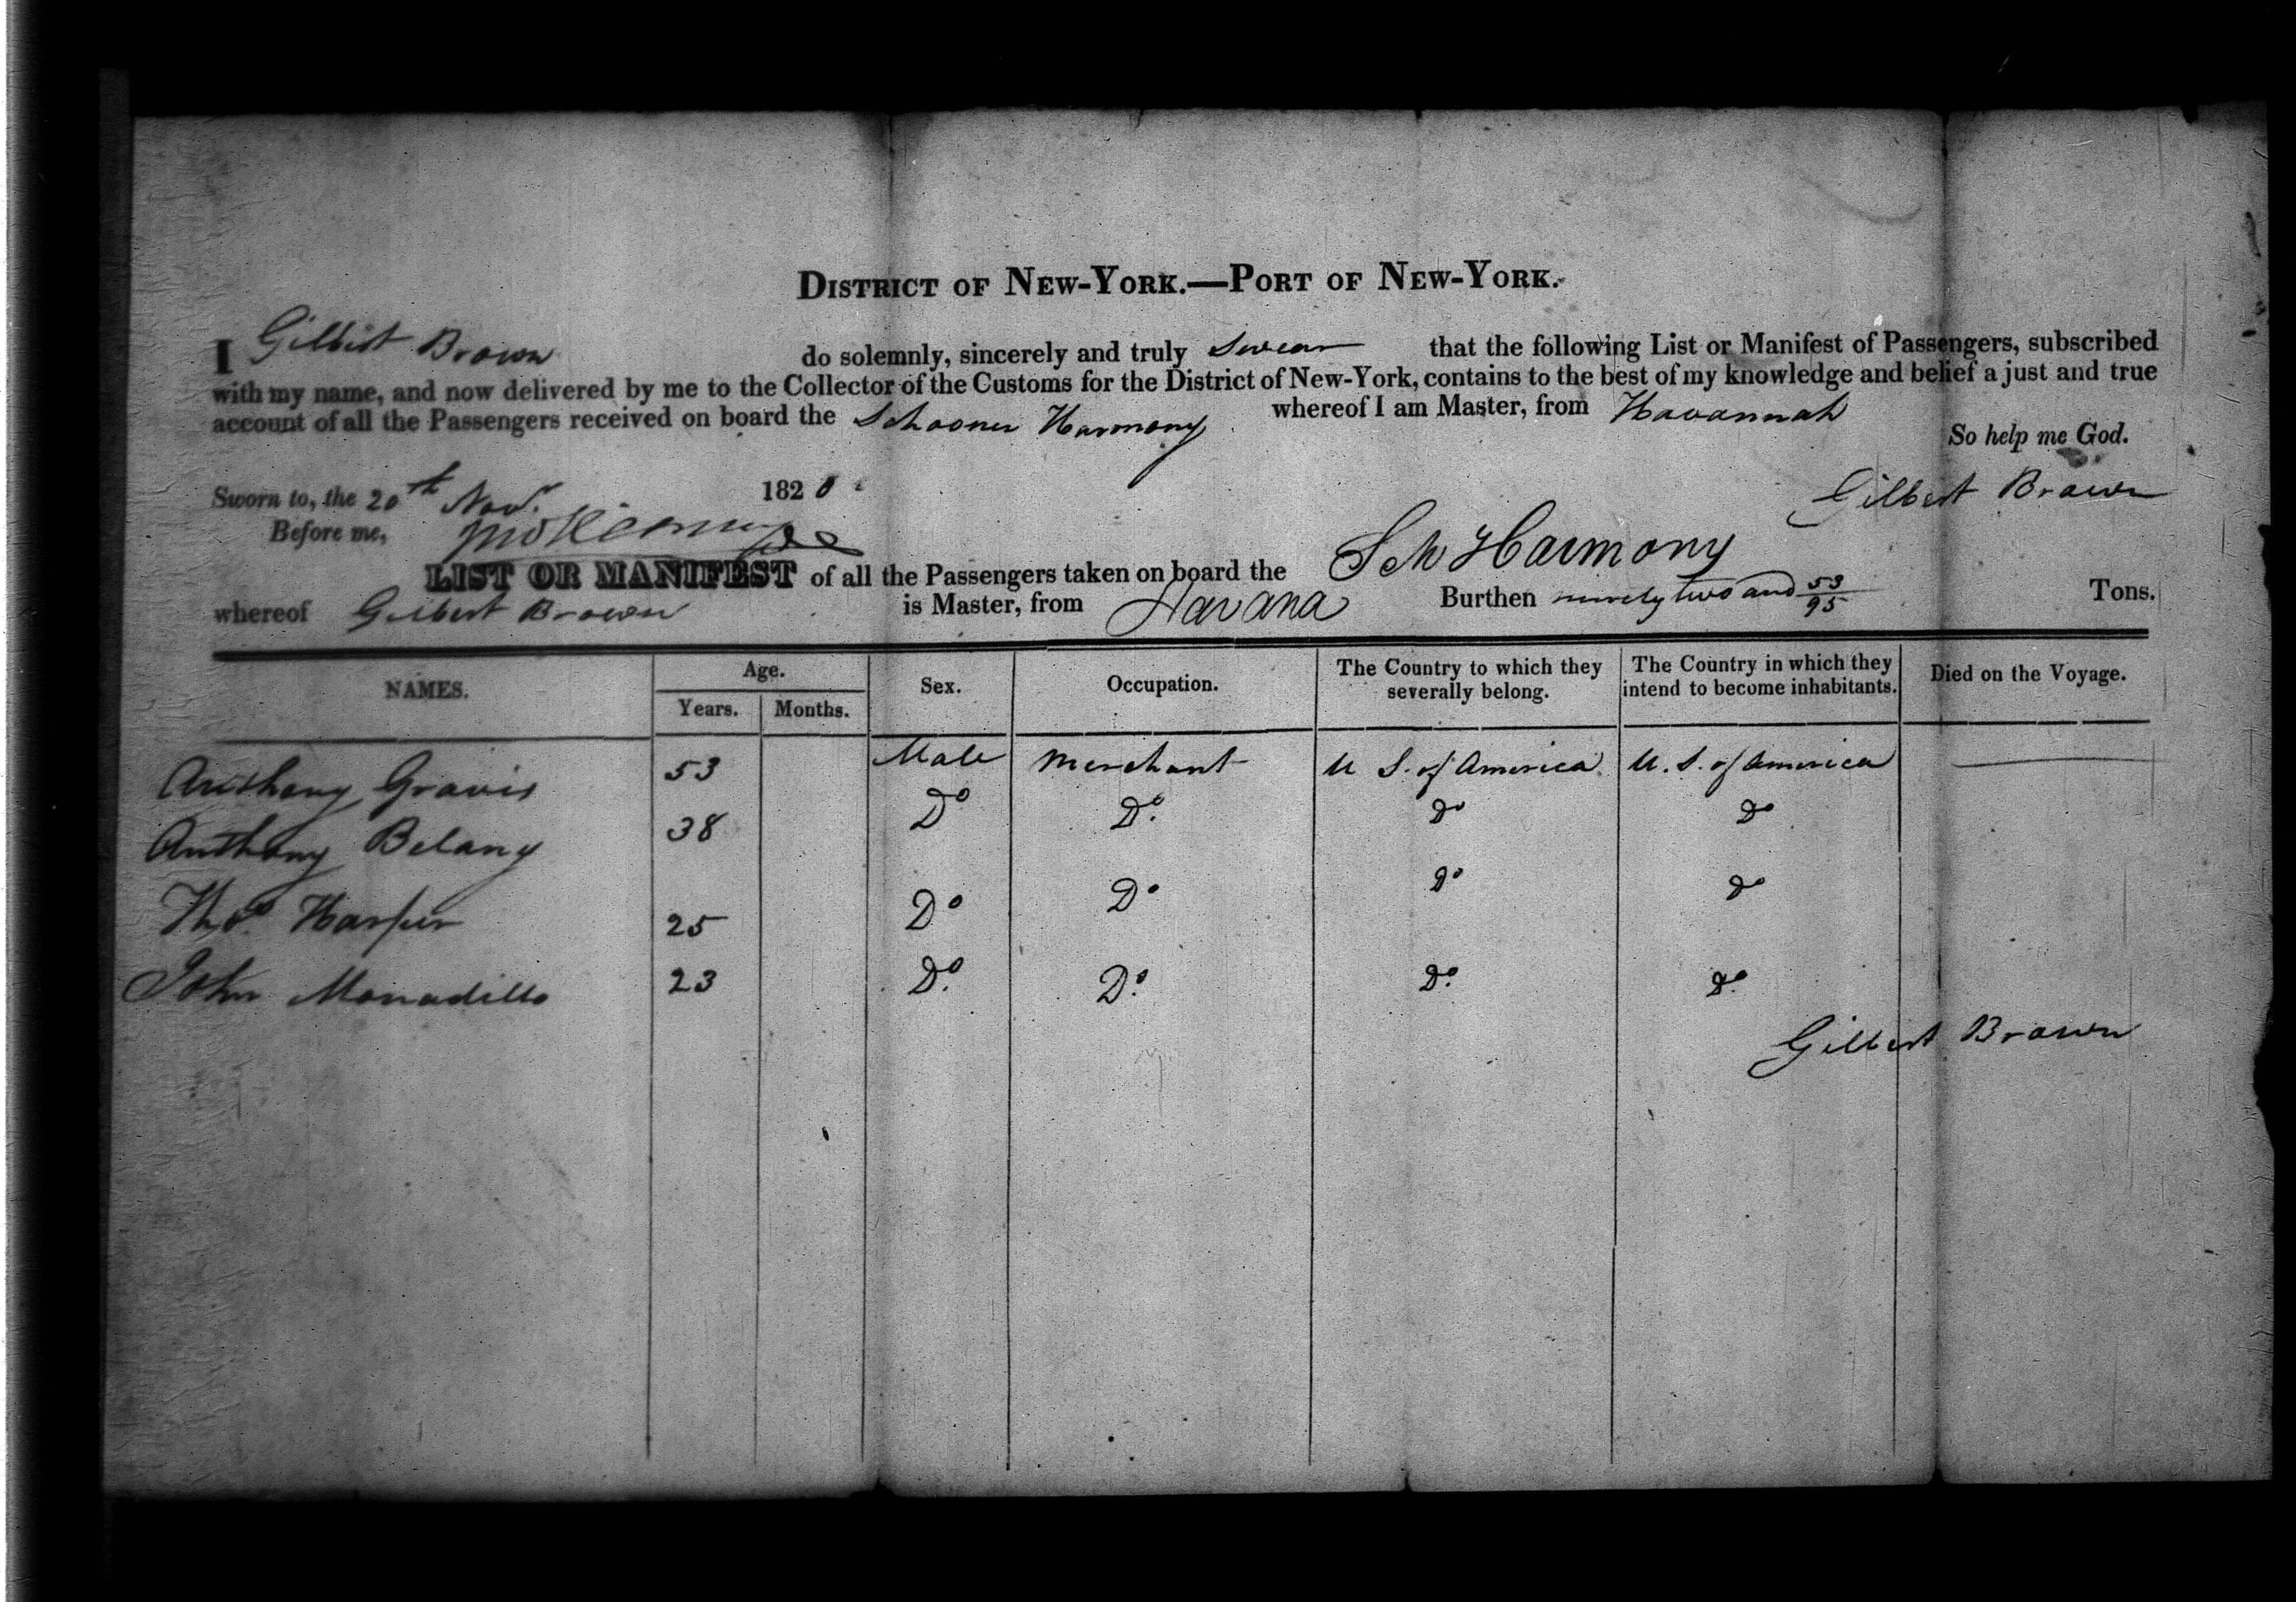 DISTRICT OF NEW-YORK.—PORT OF NEW-YORK.
I Gilbert Brown do solemnly, sincerely and truly Swear that the following List or Manifest of Passengers, subscribed
with my name, and now delivered by me to the Collector of the Customs for the District of New-York, contains to the best of my knowledge and belief a just and true
account of all the Passengers received on board the Schooner Harmony whereof I am Master, from Havannah
So help me God.
Sworn to, the 20th Nov. 1820
Gilbert Brown
Before me,
LIST OR MANIFEST of all the Passengers taken on board the Sch Harmony
whereof Gilbert Brown is Master, from Havana Burthen ninety two and 53/95 Tons.
NAMES. Age. Sex. Occupation. The Country to which they severally belong. The Country in which they intend to become inhabitants. Died on the Voyage.
Years. Months.
Anthony Gravis 53 Male Merchant U S. of America U. S. of America
Anthony Belany 38 Do Do. Do Do
Thos. Harper 25 Do Do Do Do
John Monadillo 23 Do. Do. Do. Do.
Gilbert Brown